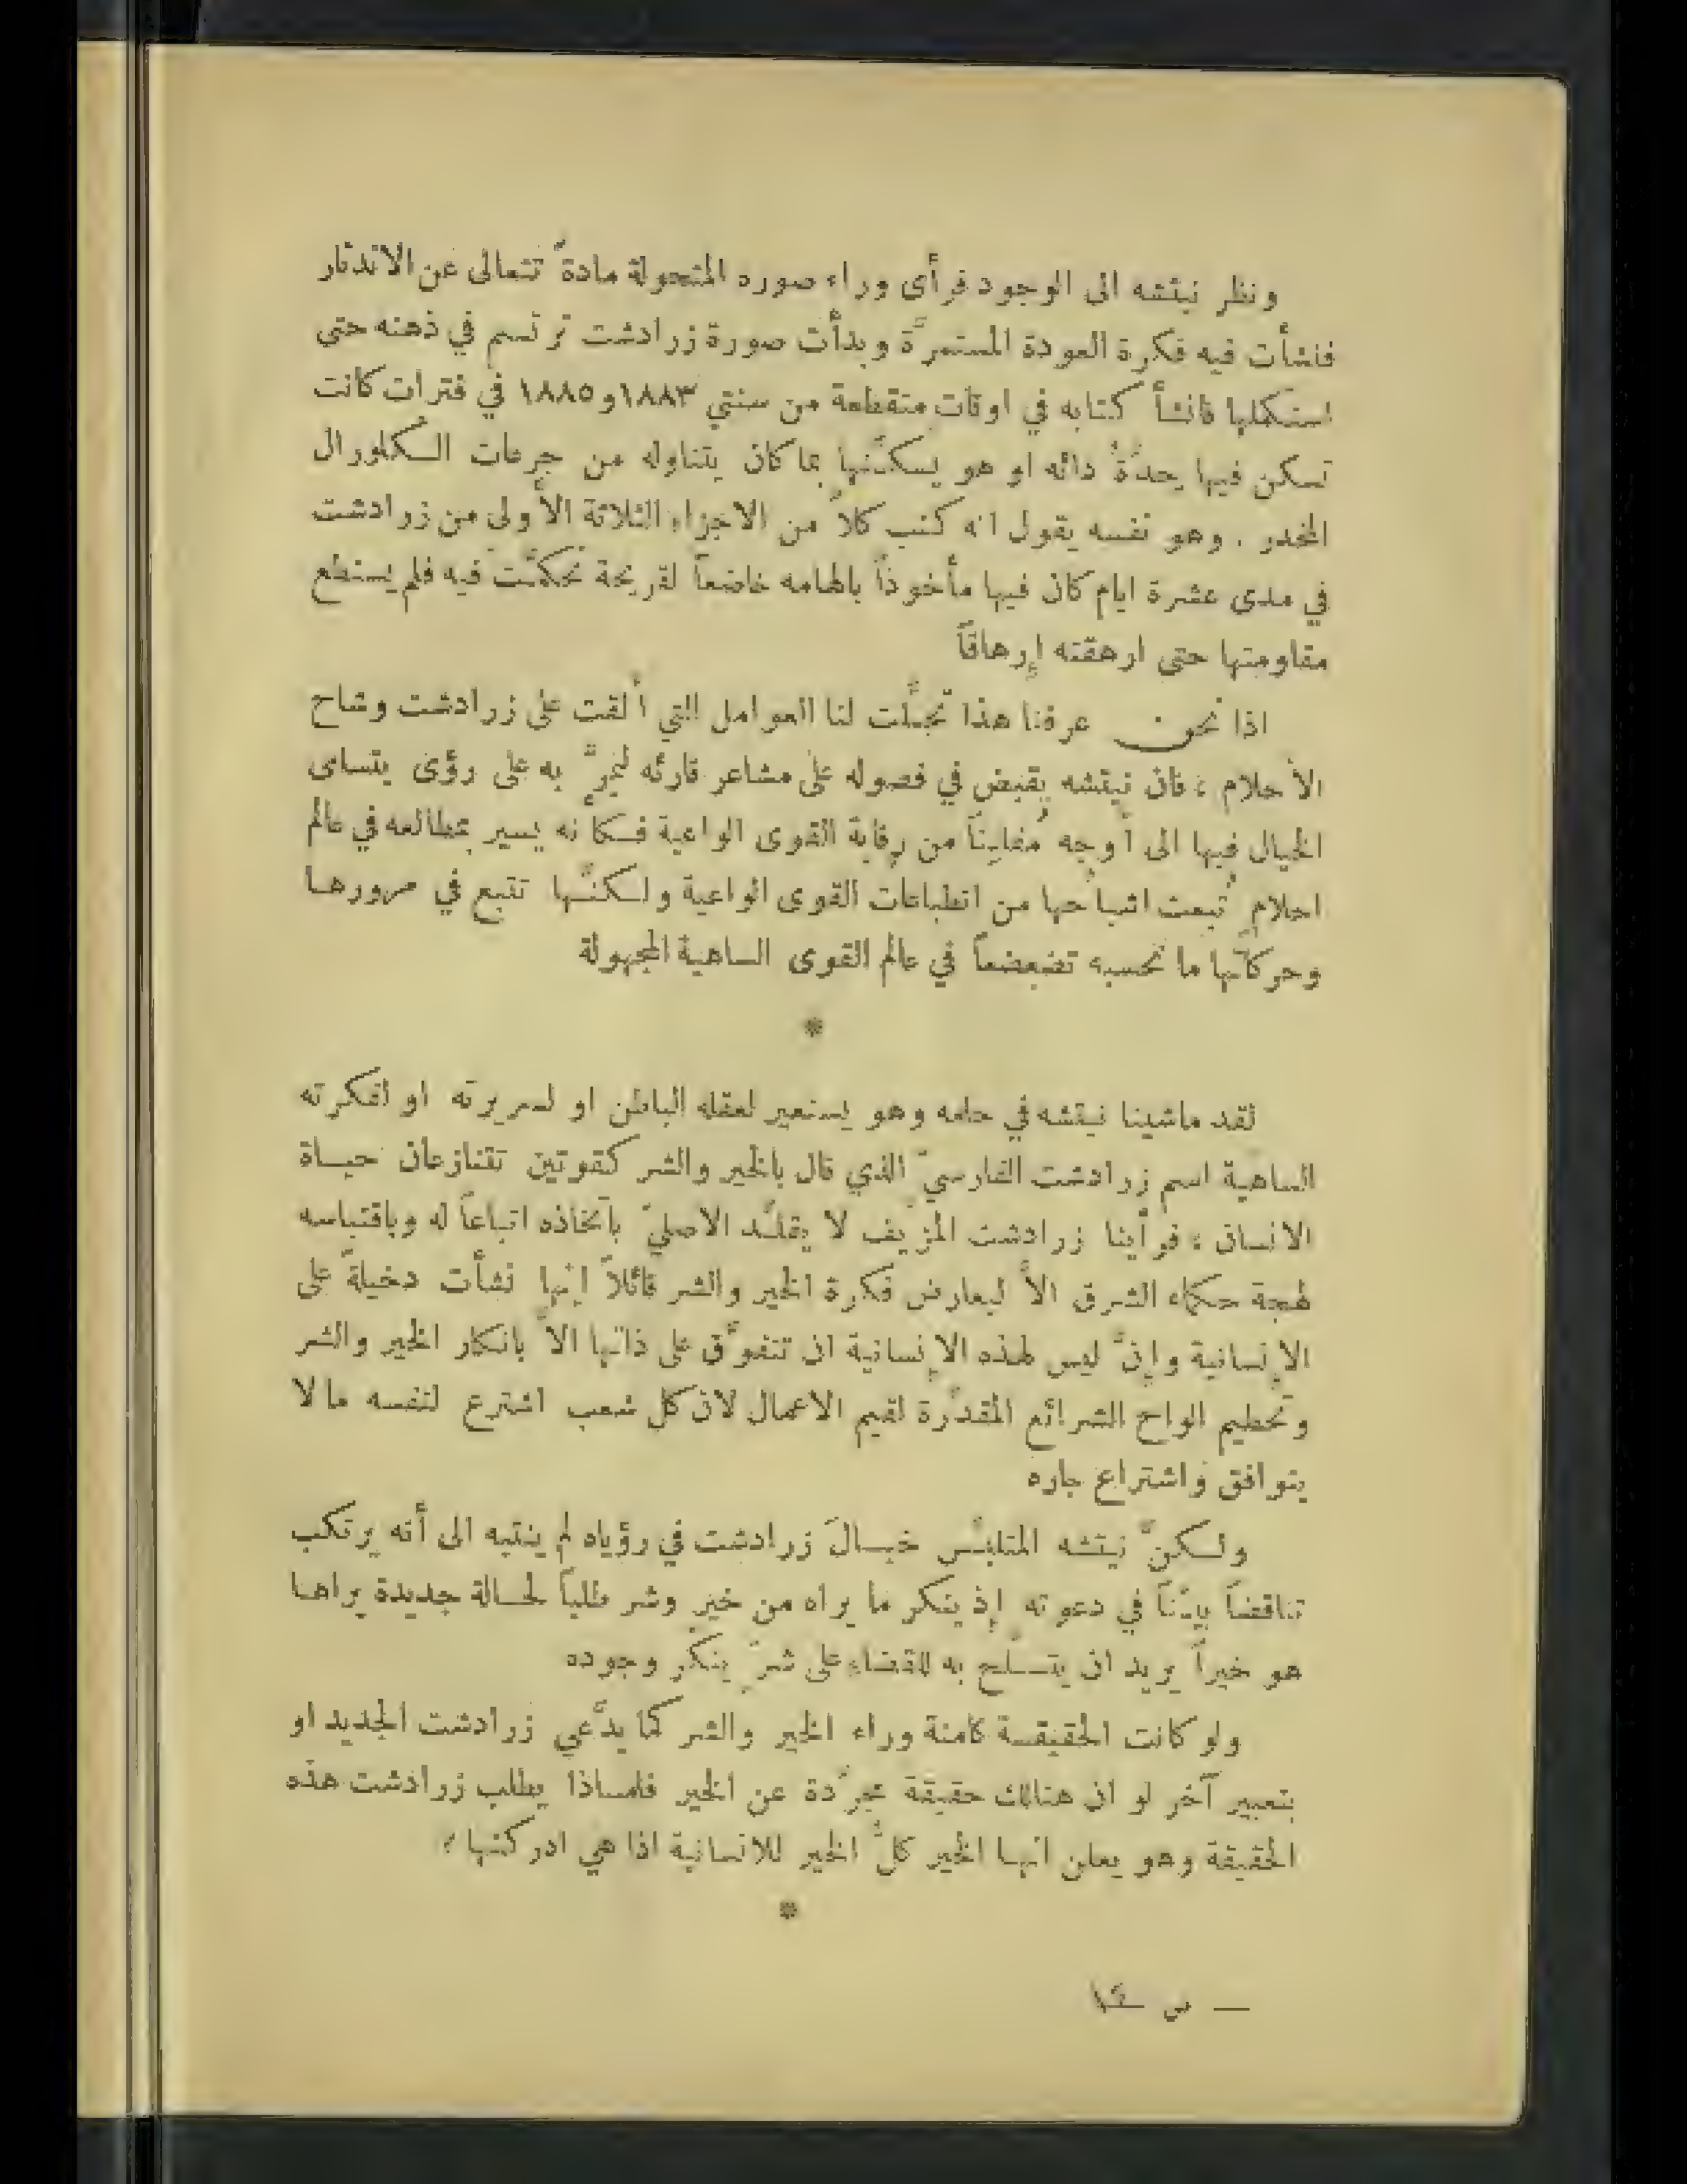 ونظر نيتشه الى الوجود فرأى وراء صوره المتحولة مادةً تتعالى عن الاندثار
فنشأت فيه فكرة العودة المستمرَّة وبدأت صورة زرادشت ترتسم في ذهنه حتى
استكملها فانشأ كتابه في اوقات متقطعة من سنتي ١٨٨٣و١٨٨٥ في فترات كانت
تسكن فيها حدَّةُ دائه او هو يسكّنها بما كان يتناوله من جرعات الكلورال
المخدر . وهو نفسه يقول انه كتب كلاًّ من الاجزاء الثلاثة الأولى من زرادشت
في مدى عشرة ايام كان فيها مأخوذاً بالهامه خاضعاً لقريحة تحكمَّت فيه فلم يستطع
مقاومتها حتى ارهقته إِرهاقاً
اذا نحن عرفنا هذا تجلَّت لنا العوامل التي ألقت على زرادشت وشاح
الأحلام ، فان نيتشه يقبض في فصوله على مشاعر قارئه ليمرَّ به على رؤى يتسامى
الخيال فيها الى أوجه مُفلِتاً من رقابة القوى الواعية فكأنه يسير بمطالعه في عالم
احلامٍ تُبعث اشباحها من انطباعات القوى الواعية ولكنَّها تتبع في مرورها
وحركاتها ما نحسبه تضعضعاً في عالم القوى الساهية المجهولة
*
لقد ماشينا نيتشه في حلمه وهو يستعير لعقله الباطن او لسريرته او لفكرته
الساهية اسم زرادشت الفارسيّ الذي قال بالخير والشر كقوتين تتنازعان حياة
الانسان ، فرأينا زرادشت المزيف لا يقلّد الاصليّ باتخاذه اتباعاً له وباقتباسه
لهجة حكماء الشرق الاَّ ليعارض فكرة الخير والشر قائلاً إنها نشأت دخيلةً على
الإنسانية وإنَّ ليس لهذه الإنسانية ان تتفوَّق على ذاتها الاَّ بانكار الخير والشر
وتحطيم الواح الشرائع المقدَّرة لقيم الاعمال لان كل شعب اشترع لنفسه مالا
يتوافق واشتراع جاره
ولكنَّ نيتشه المتلبّس خيالَ زرادشت في رؤياه لم ينتبه الى أنه يرتكب
تناقضاً بيّناً في دعوته إذ ينكر ما يراه من خير وشر طلباً لحالة جديدة يراها
هو خيراً يريد ان يتسلّح به للقضاء على شرّ ينكر وجوده
ولو كانت الحقيقة كامنة وراء الخير والشر كما يدَّعي زرادشت الجديد او
بتعبير آخر لو ان هنالك حقيقة مجرَّدة عن الخير فلماذا يطلب زرادشت هذه
الحقيقة وهو يعلن انها الخير كلَّ الخير للانسانية اذا هي ادركتها ؟
*